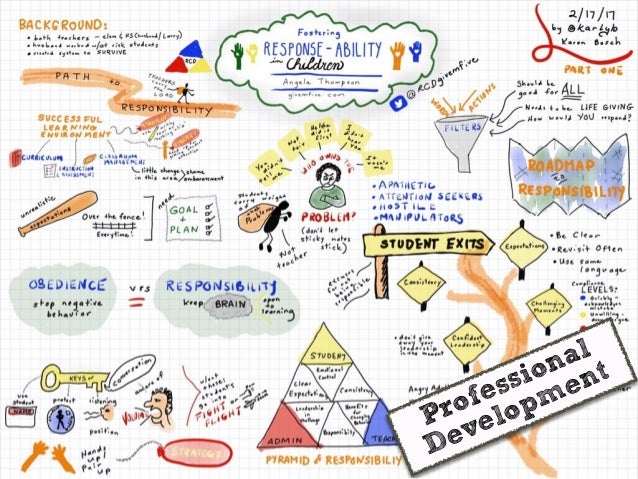 BACKGROUND:
• both teachers - elem & HS (husband/Larry)
• husband worked w/at risk students
• created system to SURVIVE
RCD
Fostering
RESPONSE-ABILITY
in Children
Angela Thompson
givemfive.com
@RCDgivemfive
2/17/17
by @karlyb
Karen Bosch
PART ONE
PATH to
RESPONSIBILITY
TEACHERS
carry the
LOAD
SUCCESSFUL
LEARNING
ENVIRONMENT
STRATEGY
CURRICULUM
INSTRUCTION
ASSESSMENT
CLASSROOM
MANAGEMENT
little change/shame
in this area/embarrassment
WORDS
ACTIONS
FILTERS
Should be
good for ALL
Needs to be LIFE GIVING
How would YOU respond?
ROADMAP
to
RESPONSIBILITY
WHO OWNS THE
PROBLEM?
(don't let
sticky notes
stick)
Not
teacher
students
carry weight
Problem
• APATHETIC
• ATTENTION SEEKERS
• HOSTILE
• MANIPULATORS
unrealistic
expectations
Over the fence!
Everytime!
need
GOAL
+
PLAN
STUDENT EXITS
escapes
responsible
Expectations
• Be Clear
• Revisit Often
• Use same
language
Consistency
Challenging
Moments
Compliance
LEVELS:
Confident
Leadership
• don't give
away your
leadership
in the moment
OBEDIENCE
stop negative
behavior
vrs
RESPONSIBILITY
keep BRAIN open
to
learning
KEYS of
conversation
use
student
NAME
protect
listening
position
Volume
Hands
up!
Pair
up
students
go into
FIGHT or
FLIGHT
STRATEGY
STUDENT
Emotional
Control
Clear
Expectations
Consistency
Leadership
Challenge
Responsibility
Benefits
for
Changing
Behavior
ADMIN
PYRAMID of RESPONSIBILITY
Professional
Development